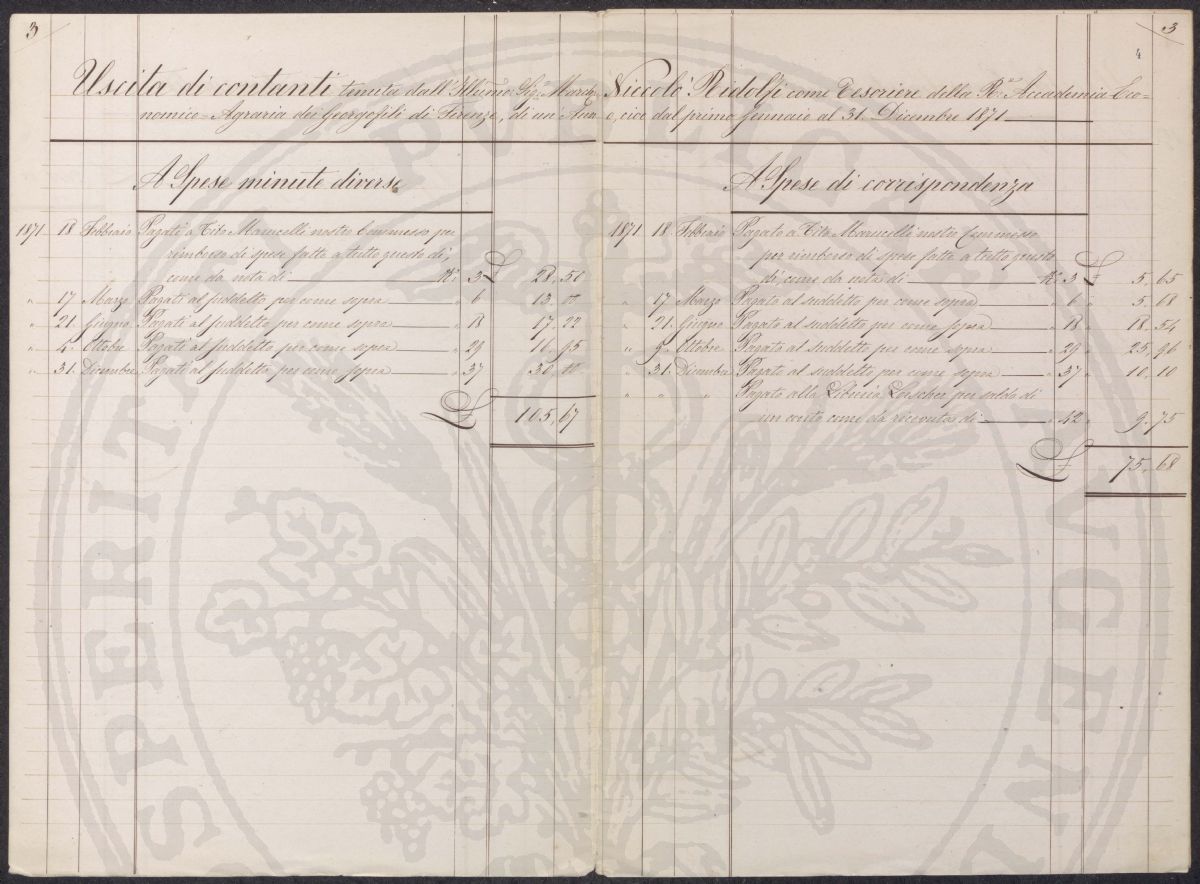 3
3
4
Uscita di contanti tenuta dall' Illmo Sig. March. Niccolò Ridolfi come Tesoriere della Rle. Accademia Eco=
nomico=Agraria dei Georgofili di Firenze, di un' Anno, cioè dal primo Gennaio al 31. Dicembre 1871
A Spese minute diverse
1871 18 Febbraio Pagati a Tito Marucelli nostro Commesso per
rimborso di spese fatte a tutto questo dì,
come da nota di No. 3 £ 28, 50
" 17 Marzo Pagati al suddetto per come sopra " 6 13, 00
" 21. Giugno Pagati al suddetto per come sopra " 18 17, 22
" 5. Ottobre Pagati al suddetto per come sopra " 29 16, 95
" 31. Dicembre Pagati al suddetto per come sopra " 37 30, 00
£ 105, 67
A Spese di corrispondenza
1871 18 Febbraio Pagato a Tito Marucelli nostro Commesso
per rimborso di spese fatte a tutto questo
dì come da nota di No. 3 £ 5, 65
" 17 Marzo Pagato al suddetto per come sopra " 6 " 5, 68
" 21. Giugno Pagato al suddetto per come sopra " 18 " 18, 54
" 5. Ottobre Pagato al suddetto per come sopra " 29 " 25, 96
" 31. Dicembre Pagato al suddetto per come sopra " 37 " 10, 10
" " " Pagato alla Libreria Loescher per saldo di
un conto come da ricevuta di " 42 " 9, 75
£ 75, 68